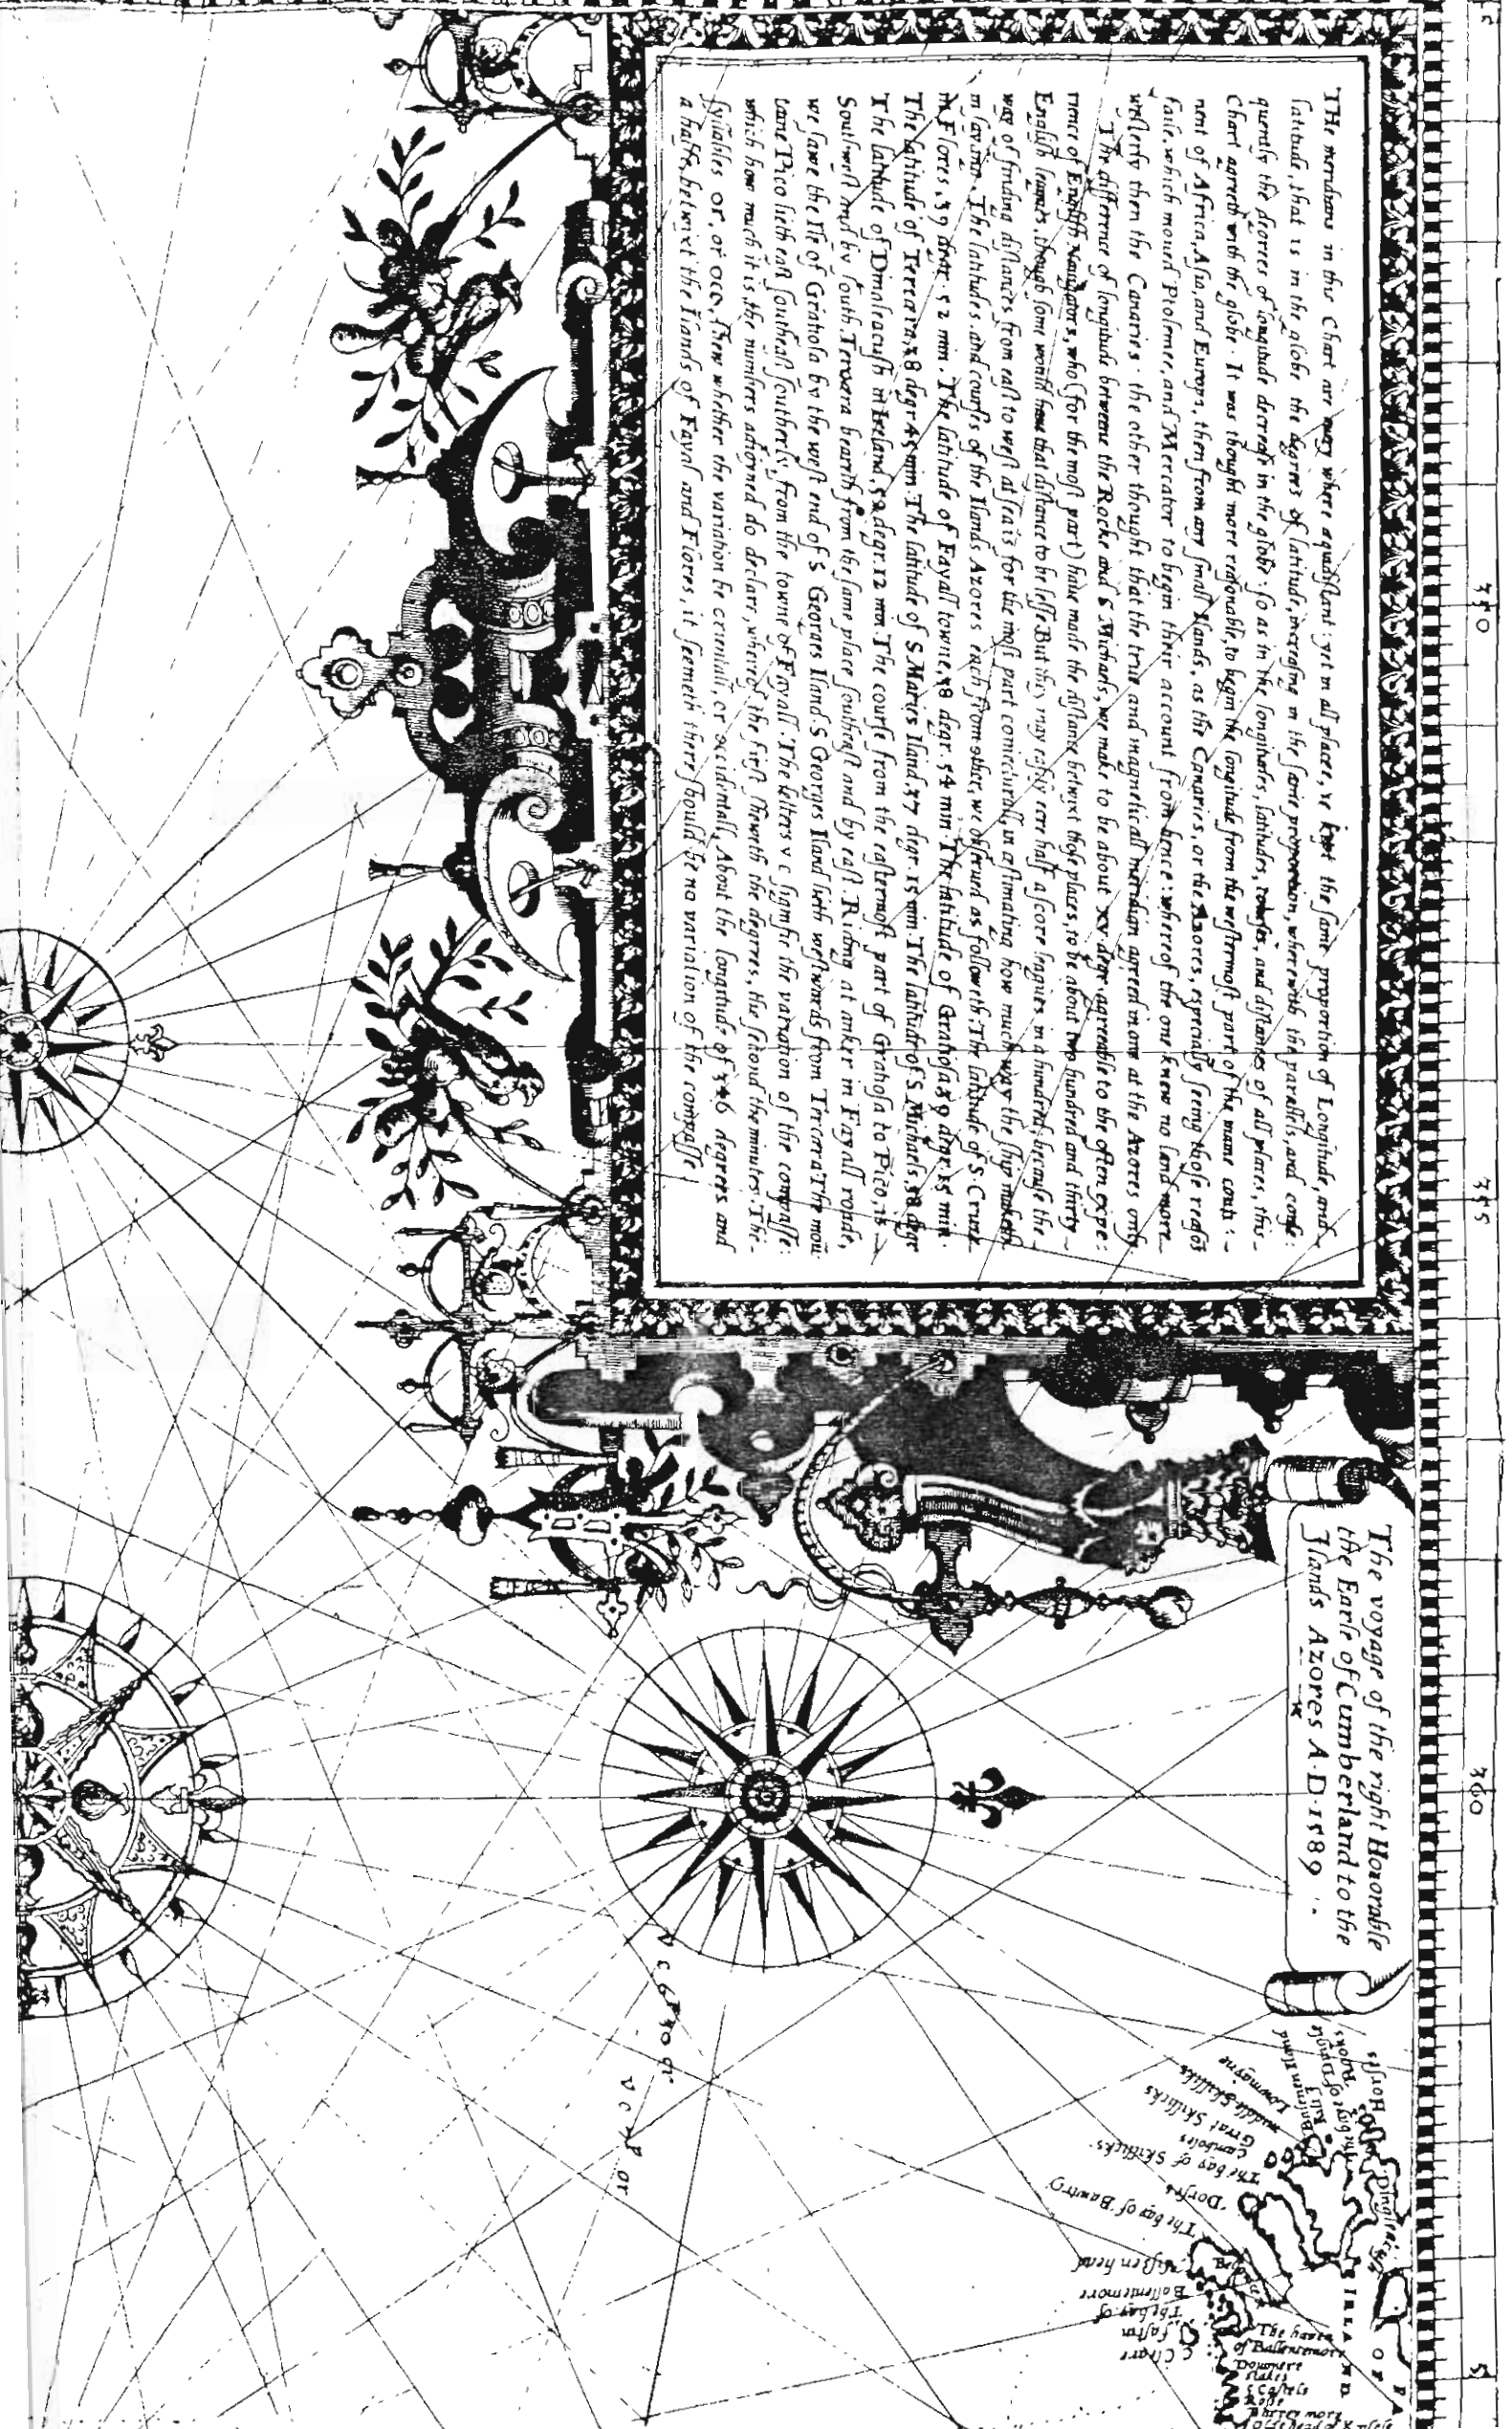 THe meridians in this Chart are euery where æquidistant: yet in all places, is kept the same proportion of Longitude, and
latitude, that is in the globe the degrees of latitude, increasing in the same proportion, wherewith the parallels, and conse:
quently the degrees of longitude decrease in the globe: so as in the longitudes, latitudes, and distances of all places, this
Chart agreeth with the globe. It was thought more reasonable, to begin the longitude from the westermost part of the mayne conti:
nent of Africa, Asia, and Europa, then from any small Ilands, as the Canaries, or the Azores, especially seeing those reasõs
faile, which moued Ptolemee, and Mercator to begin their account from hence: whereof the one knew no land more
westerly then the Canaries: the other thought that the true and magneticall meridian agreed in one at the Azores only
The difference of longitude betweene the Rocke and S Michaels, we make to be about xv degr. agreeable to the often expe:
rience of English Nauigators, who (for the most part) haue made the distance betwixt those places, to be about two hundred and thirty
English leagues, though some would haue that distance to be lesse But they may easily erre half a score leagues in a hundred: because the
way of finding distances from east to west at sea is for the most part coniecturall, in æstimating how much way the ship maketh
The latitudes and courses of the Ilands Azores each from other, we obserued as followeth: The latitude of S. Cruz
in Flores, 39 degr. 52 min. The latitude of Fayall towne, 38 degr. 54 min. The latitude of Gratiosa 39 degr. 15 min.
The latitude of Tercera, 38 degr 45 min. The latitude of S Maries Iland, 37 degr. 15 min. The latitude of S. Michaels, 38 degr
The latitude of Dinoleacush in Ireland, 52 degr. 12 min. The course from the eastermost part of Gratiosa to Pico, is
Southwest and by south. Tercera beareth from the same place southeast and by east. Riding at anker in Fayall roade,
we sawe the Ile of Gratiosa by the west end of S Georges Iland. S Georges Iland lieth westwards from Tercera. The moũ
taine Pico lieth east southeast southerly, from the towne of Fayall. The letters v c signifie the variation of the compasse:
which how much it is, the numbers adioyned do declare, whereof the first sheweth the degrees, the second the minutes. The
syllables or, or occ, shew whether the variation be orientall, or occidentall. About the longitude of 346 degrees and
a halfe, betwixt the Ilands of Fayal and Flores, it seemeth there should be no variation of the compasse
The voyage of the right Honorable
the Earle of Cumberland to the
Ilands Azores A.D. 1589
350
355
360
5
Horses
Lowmayne
middle Skillicks
Great Skillicks
Gamboles
The bay of Skillicks
Dorses
The bay of Bawtry
Missen head
The bay of
Ballentemore
fasten
Cleare
The haven
of Ballentemore
Downere
stakes
S Castels
Rosse